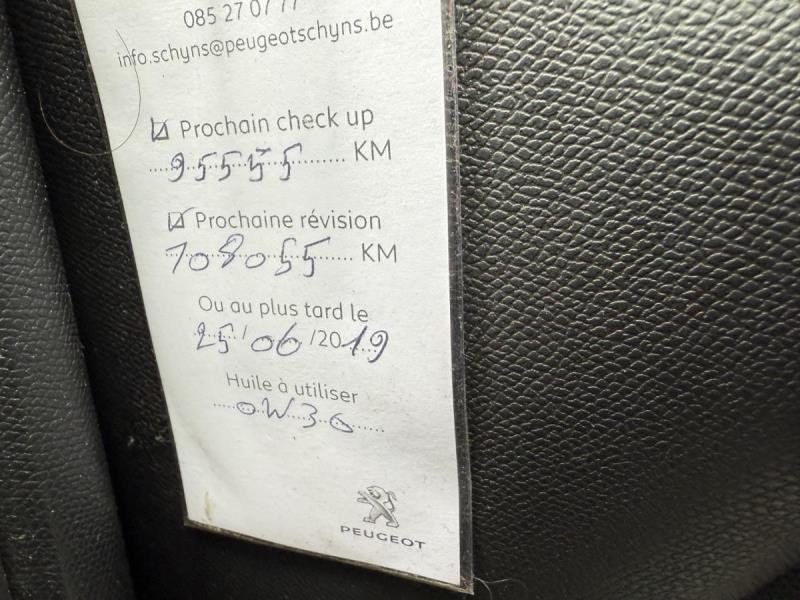 085 27 07 77
info.schyns@peugeotschyns.be
Prochain check up
95555 KM
Prochaine révision
108055 KM
Ou au plus tard le
25/06/2019
Huile à utiliser
0W30
PEUGEOT